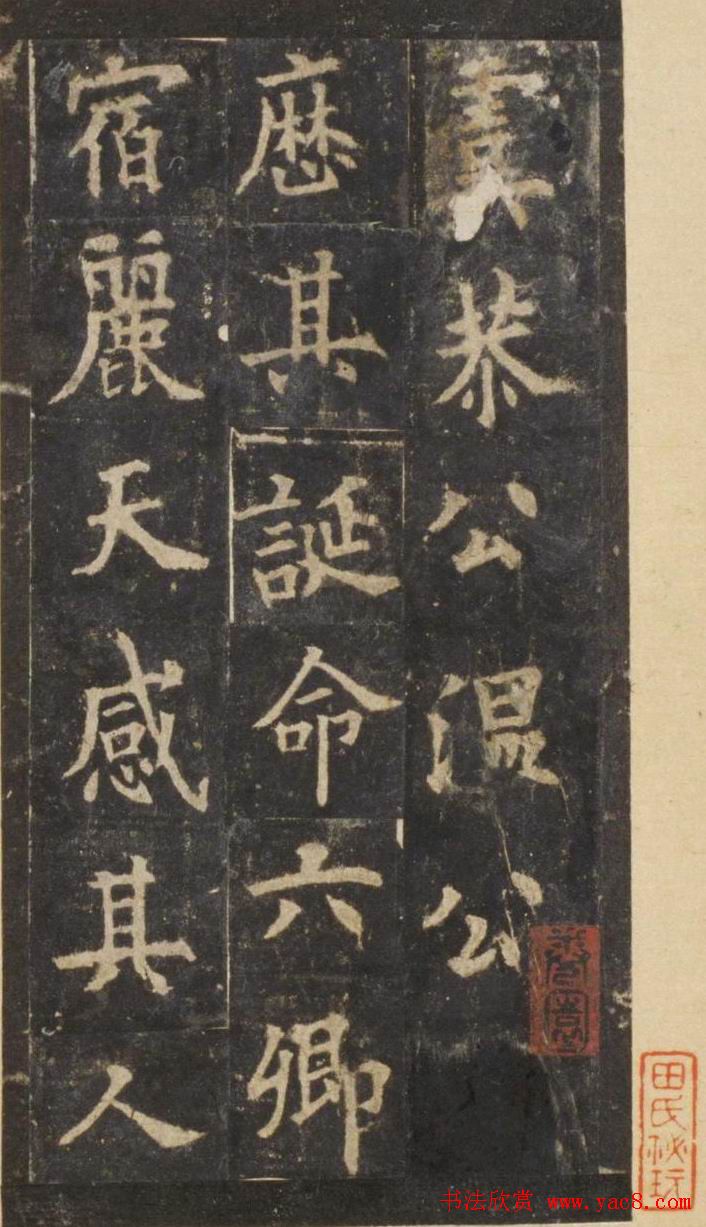 恭公温公
厯其誕命六卿
宿麗天感其人
田氏秘玩
书法欣赏 www.yac8.com